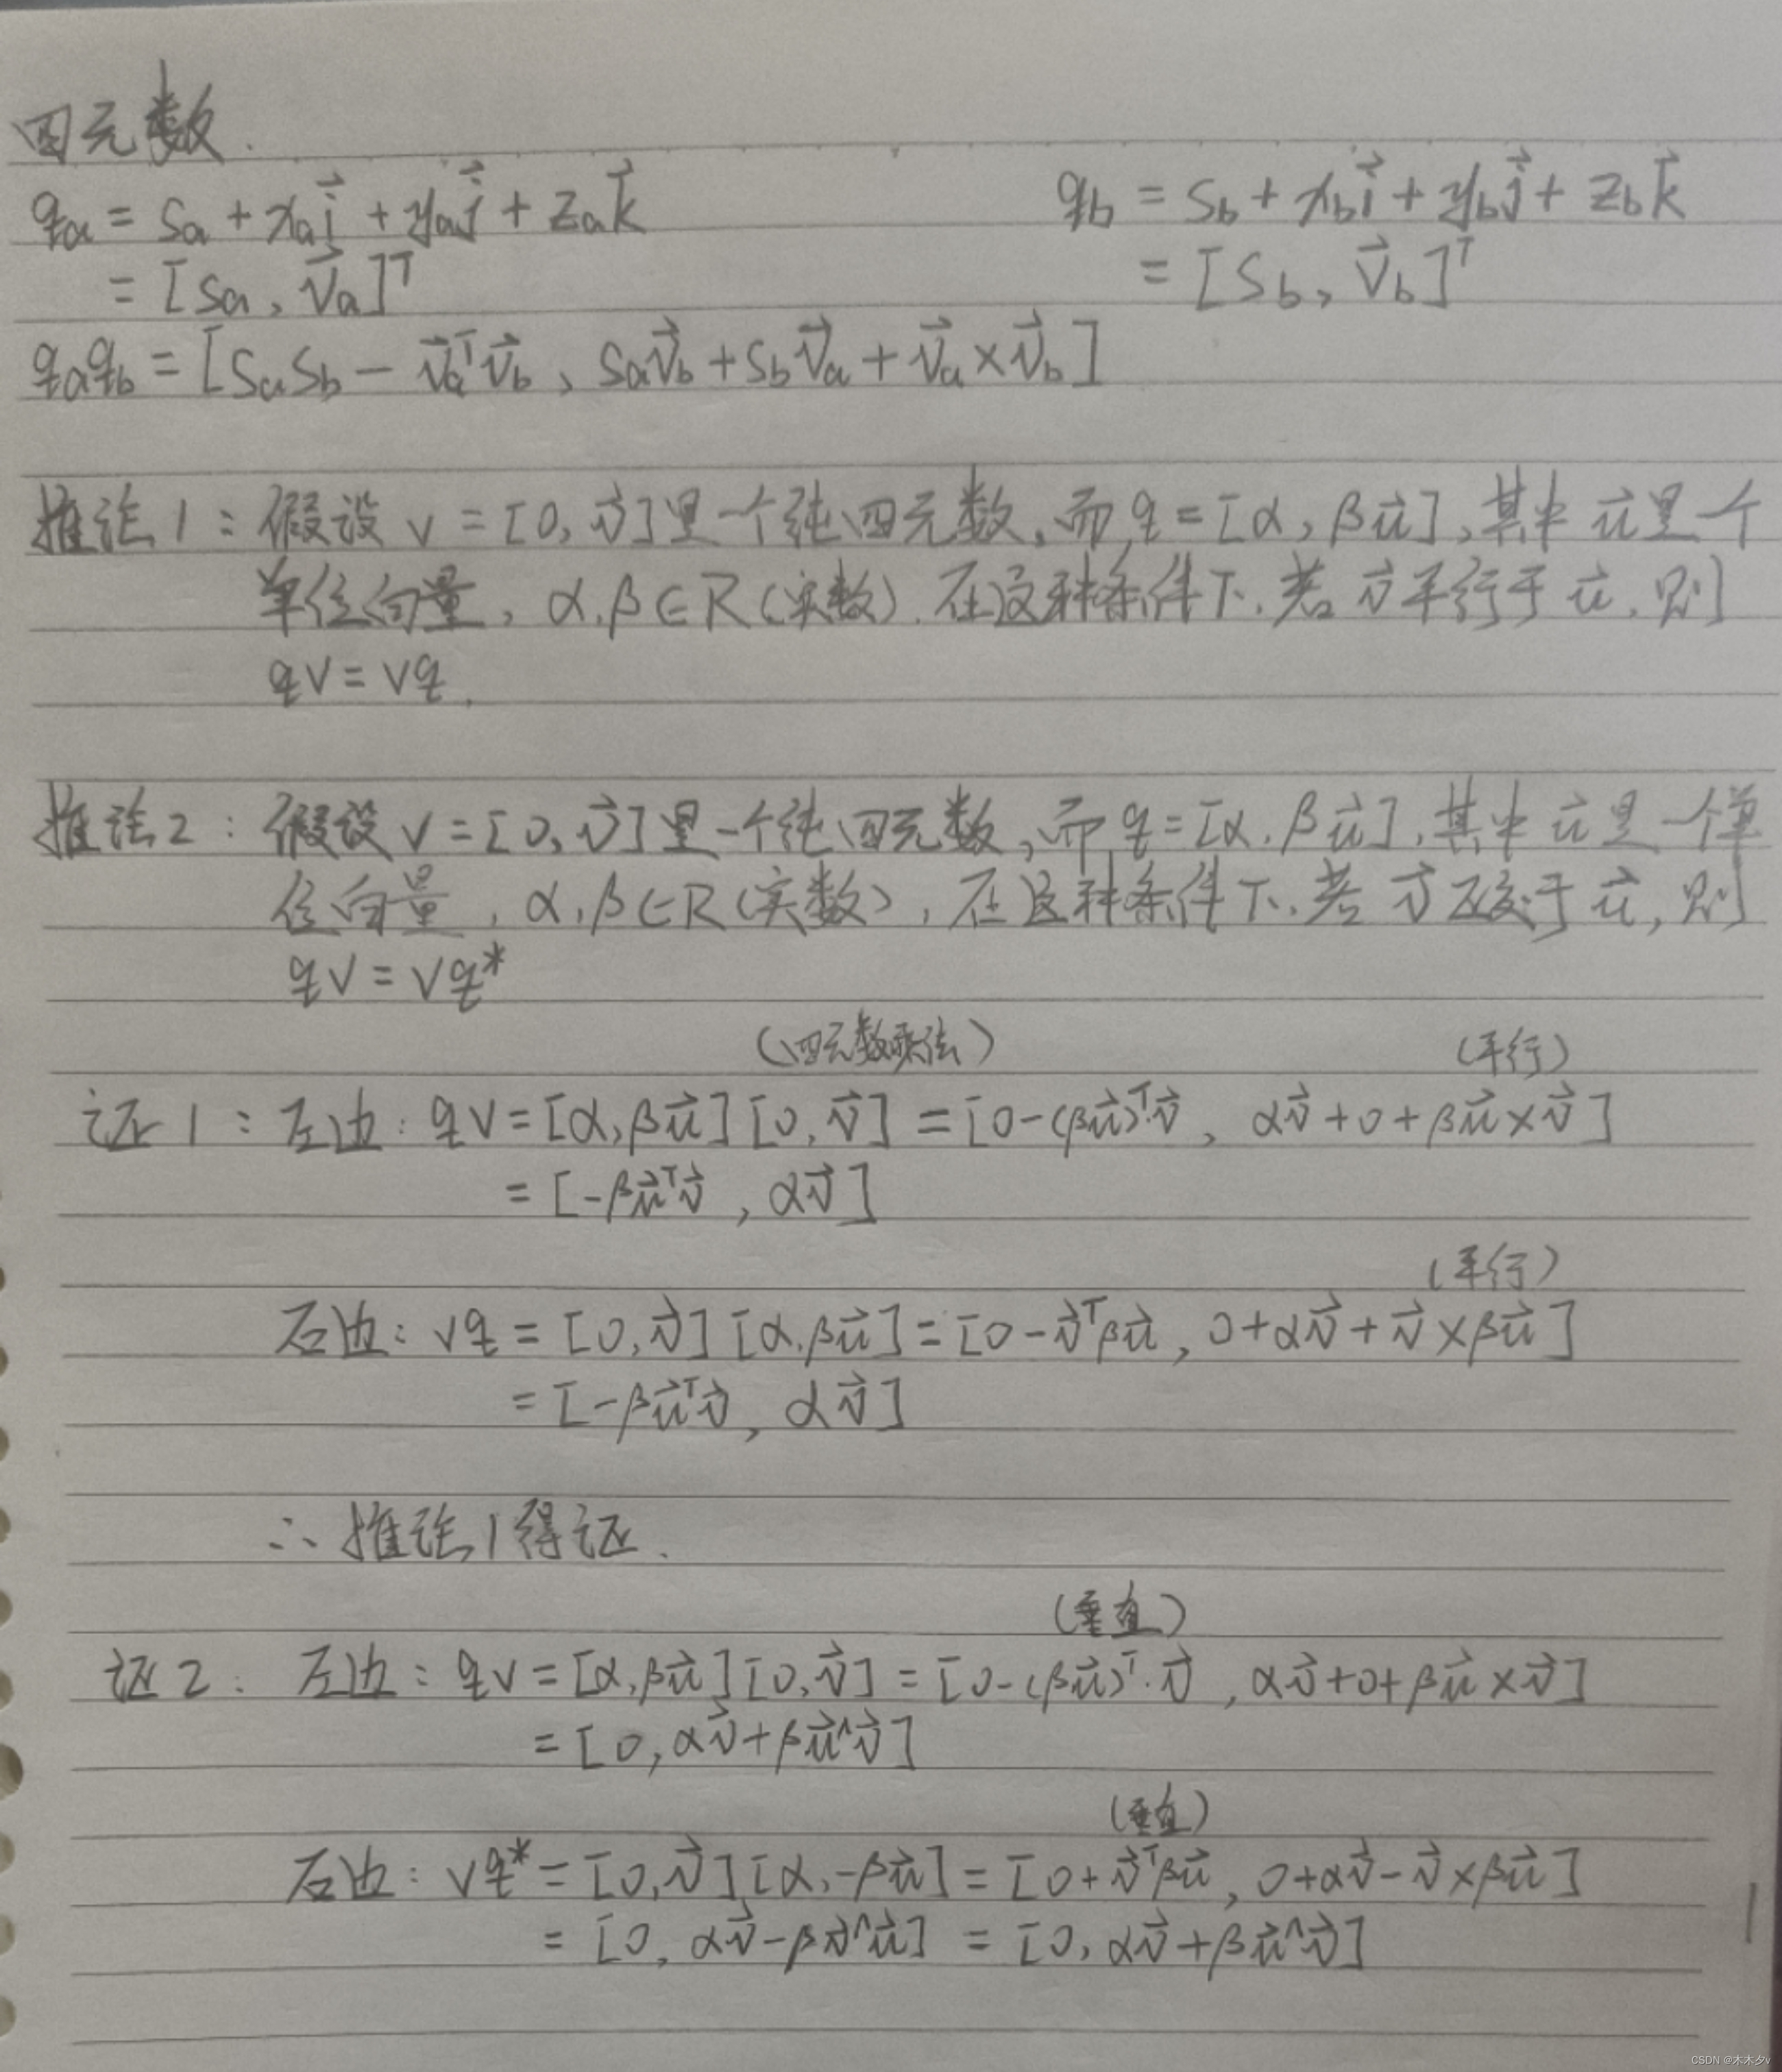 四元数.
qₐ = sₐ + xₐi⃗ + yₐj⃗ + zₐk⃗
q_b = s_b + x_b i⃗ + y_b j⃗ + z_b k⃗
= [sₐ, v⃗ₐ]ᵀ
= [s_b, v⃗_b]ᵀ
qₐq_b = [sₐs_b − v⃗ₐᵀv⃗_b, sₐv⃗_b + s_b v⃗ₐ + v⃗ₐ × v⃗_b]
推论1: 假设 v = [0, v⃗]是一个纯四元数,而 q = [α, βu⃗],其中 u⃗是一个
单位向量, α,β∈R(实数). 在这种条件下,若 v⃗平行于 u⃗, 则
qv = vq.
推论2: 假设 v = [0, v⃗]是一个纯四元数,而 q = [α, βu⃗],其中 u⃗是一个单
位向量, α,β∈R(实数), 在这种条件下,若 v⃗正交于 u⃗, 则
qv = vq*
(四元数乘法) (平行)
证1: 左边: qv = [α, βu⃗][0, v⃗] = [0−(βu⃗)ᵀ·v⃗, αv⃗+0+βu⃗×v⃗]
= [−βu⃗ᵀv⃗, αv⃗]
(平行)
右边: vq = [0, v⃗][α, βu⃗] = [0−v⃗ᵀβu⃗, 0+αv⃗+v⃗×βu⃗]
= [−βu⃗ᵀv⃗, αv⃗]
∴ 推论1得证.
(垂直)
证2: 左边: qv = [α, βu⃗][0, v⃗] = [0−(βu⃗)ᵀ·v⃗, αv⃗+0+βu⃗×v⃗]
= [0, αv⃗+βu⃗^v⃗]
(垂直)
右边: vq* = [0, v⃗][α, −βu⃗] = [0+v⃗ᵀβu⃗, 0+αv⃗−v⃗×βu⃗]
= [0, αv⃗−βv⃗^u⃗] = [0, αv⃗+βu⃗^v⃗]
CSDN @木木夕v